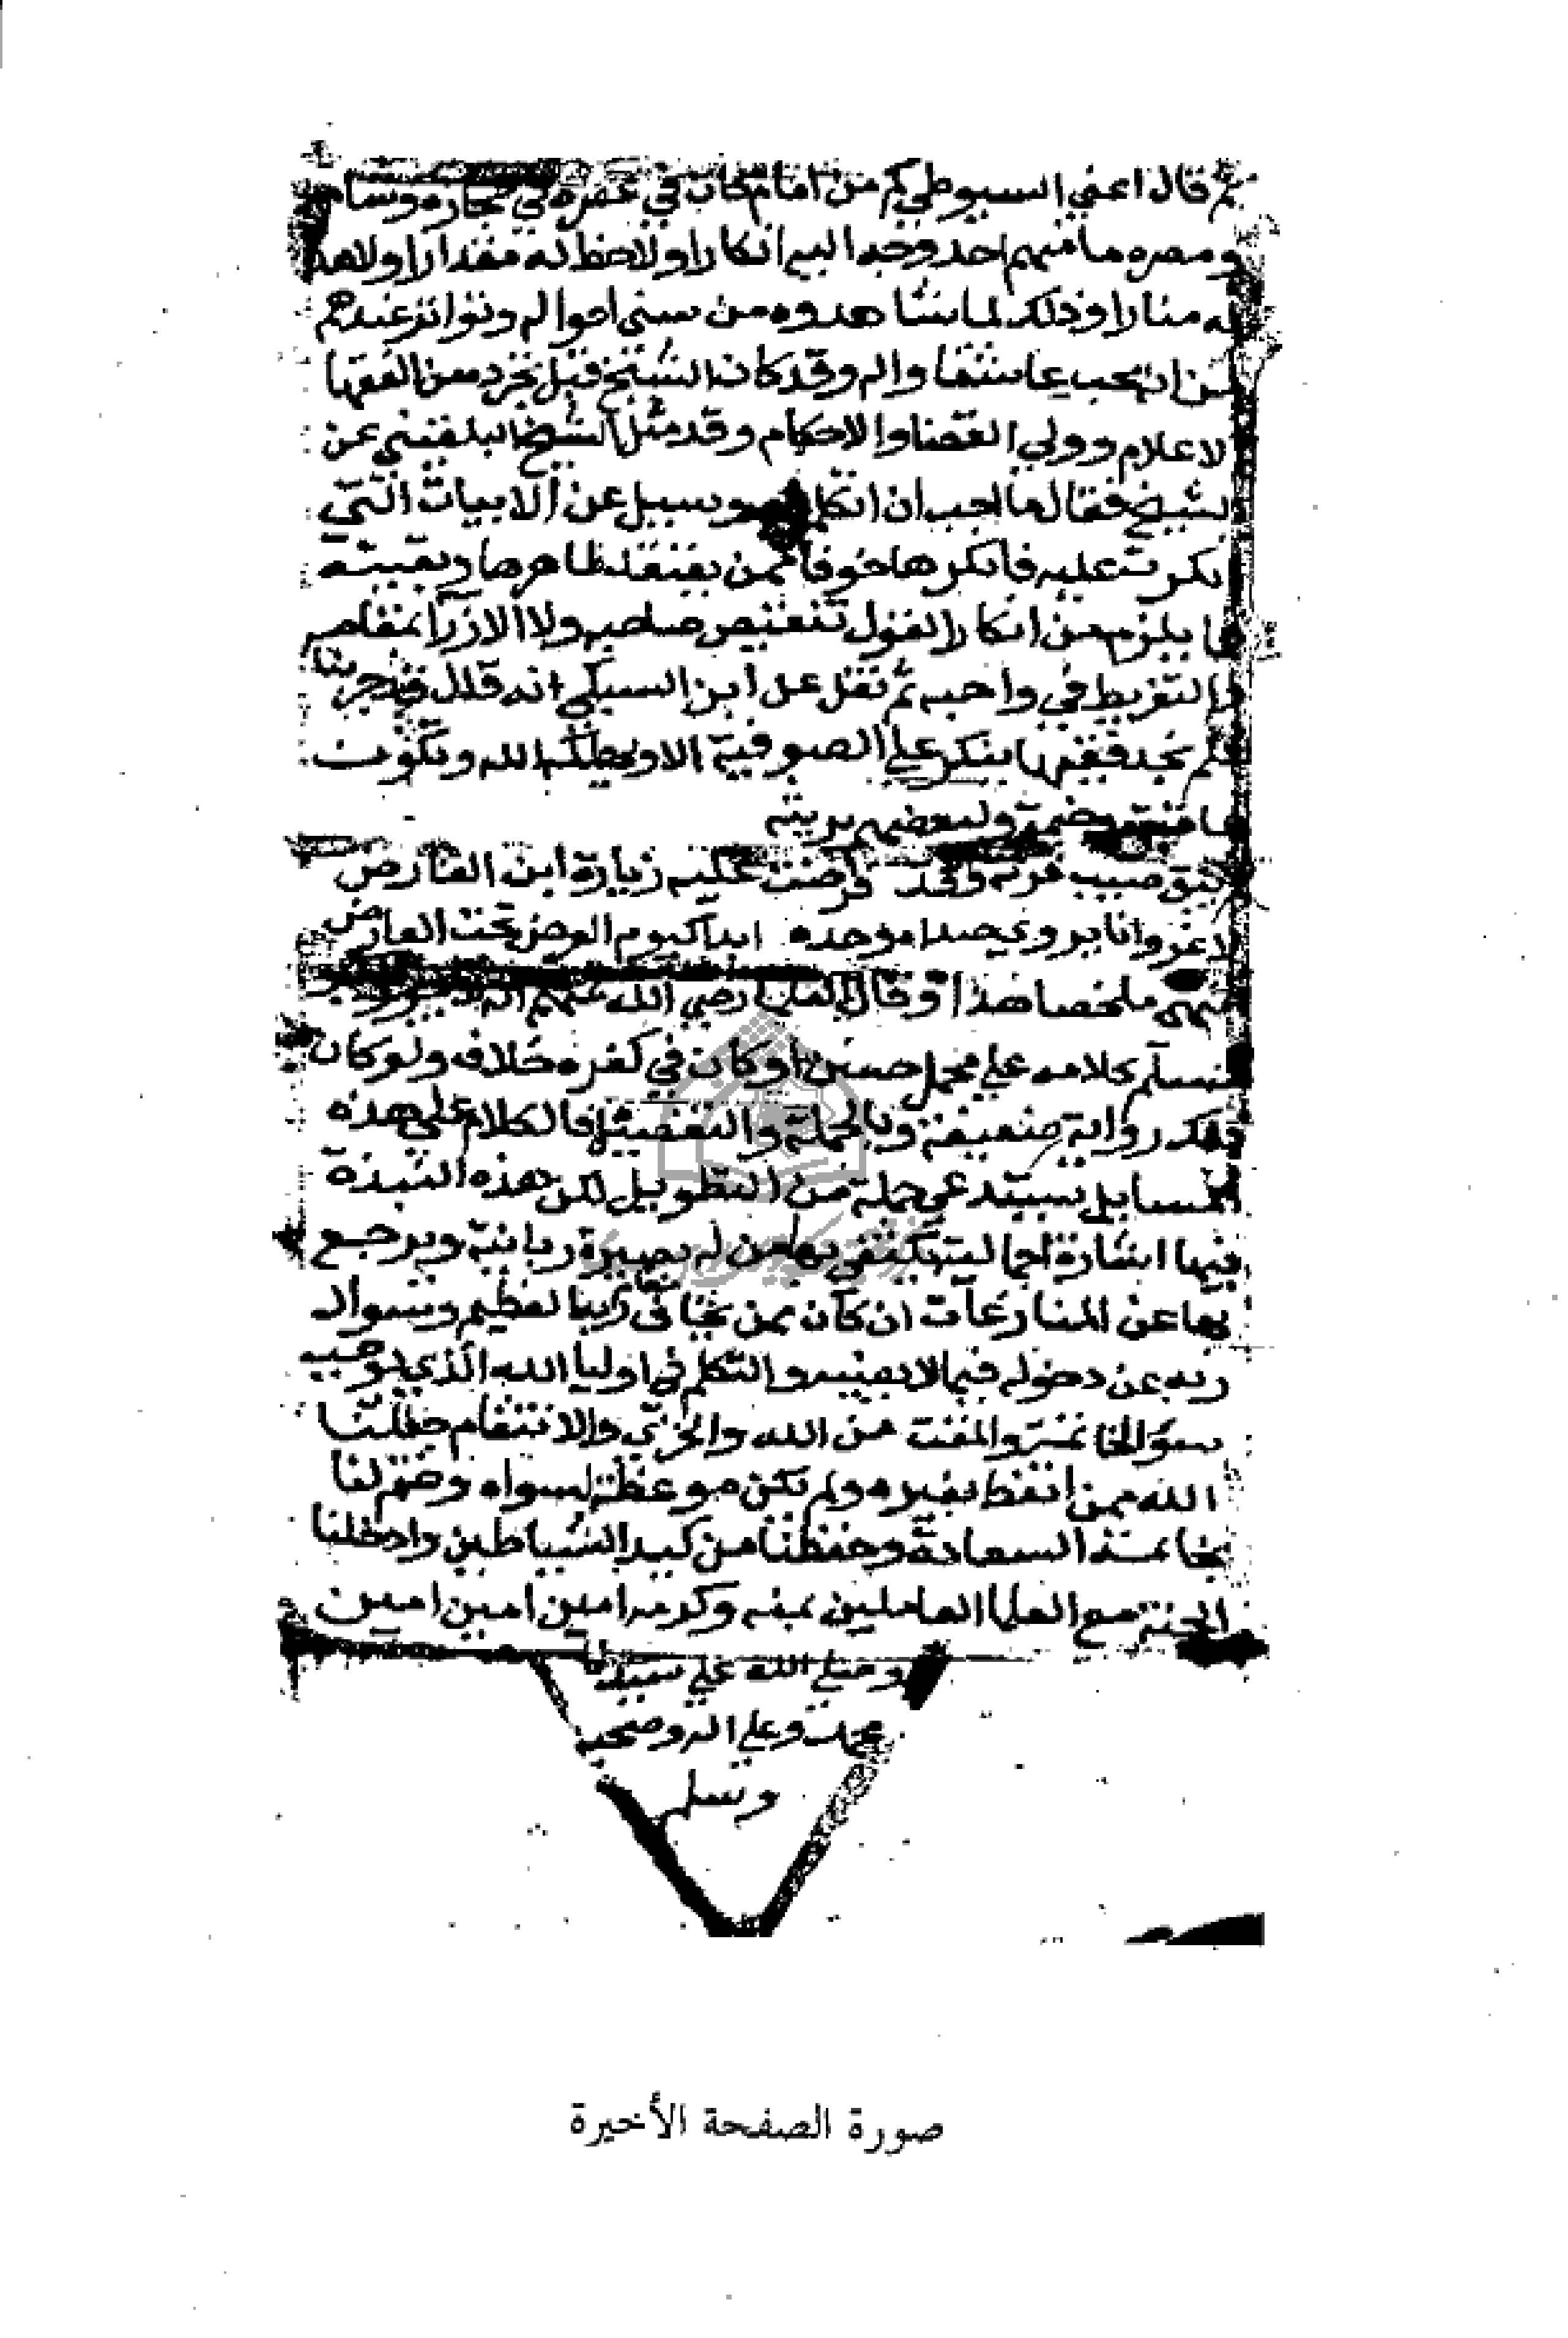 ثم قال اعني السيوطي كم من امام كان في عصره في حجازه وشامه
ومصره ما منهم احد وجه اليه انكارا ولا حط له مقدارا ولا هد
له منارا وذلك لما شاهدوه من سني احواله وتواتر عندهم
من انه محب عاشق واله وقد كان الشيخ قبل تجرده من الفقها
لاعلام وولي القضا والاحكام وقد سئل الشيخ البلقيني عن
لشيخ فقال ما احب ان اتكلم وسيل عن الابيات التي
نكرت عليه فانكرها خوفا ممن يعتقد ظاهرها وبقيته
ما يلزم من انكار القول تنقيص صاحبه ولا الازرا بمقامه
التفريط في واجبه ثم نقل عن ابن السبكي انه قال قد جربنا
فلم نجد فقيها ينكر علي الصوفية الا ويهلكه الله وتكون
عاقبته وخيمة ولبعضهم بريته
لم يبق صيب مزنة وقد فرضت عليه زيارة ابن الفارض
لا غرو ان يروي صداه وحده ابدا ليوم العرض تحت العارض
ملخصا هذا وقال العلما رضي الله عنهم انه
مسلم كلامه علي محمل حسن او كان في كفره خلاف ولو كان
ذلك رواية ضعيفة وبالجملة والتفصيل فالكلام علي هذه
المسايل يستدعي جملة من التطويل لكن هذه النبذة
فيها اشارة اجمالية يكتفي بها من له بصيرة ربانية ويرجع
بها عن المنازعات ان كان ممن يخاف مقام ربنا العظيم وسوال
ربه عن دخوله فيما لا يعنيه والتكلم في اوليا الله الذي يوجب
سؤ الخاتمة والمقت من الله والخزي والانتقام جعلنا
الله ممن اتعظ بغيره ولم يكن موعظة لسواه وختم لنا
بخاتمة السعادة وحفظنا من كيد الشياطين وادخلنا
الجنة مع العلما العاملين بمنه وكرمه امين امين امين
وصلي الله علي سيدنا
محمد وعلي اله وصحبه
وسلم
صورة الصفحة الأخيرة